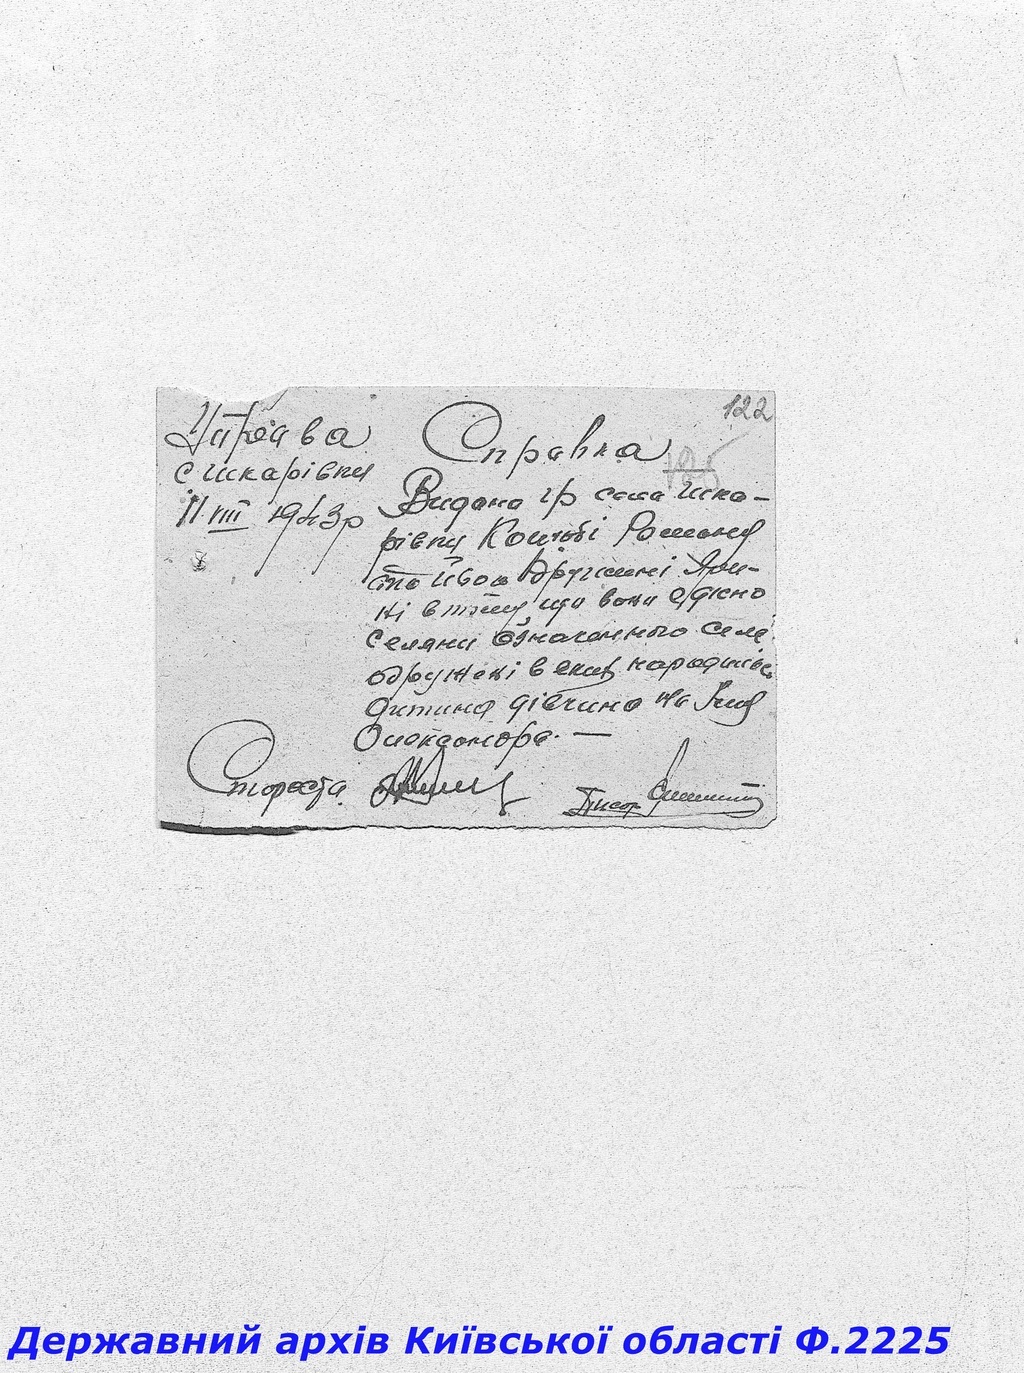 122
Управа
с шкарівки
11 III 1943 р
Справка
Видана гр села Шка-
рівки Коцюбі Роману
та йвою дружині Яри-
ні в тому що вони дісно
селяни означеного села
одружені в яких народилась
дитина дівчина на імя
Олександра. —
Староста
Писар
Державний архів Київської області Ф.2225